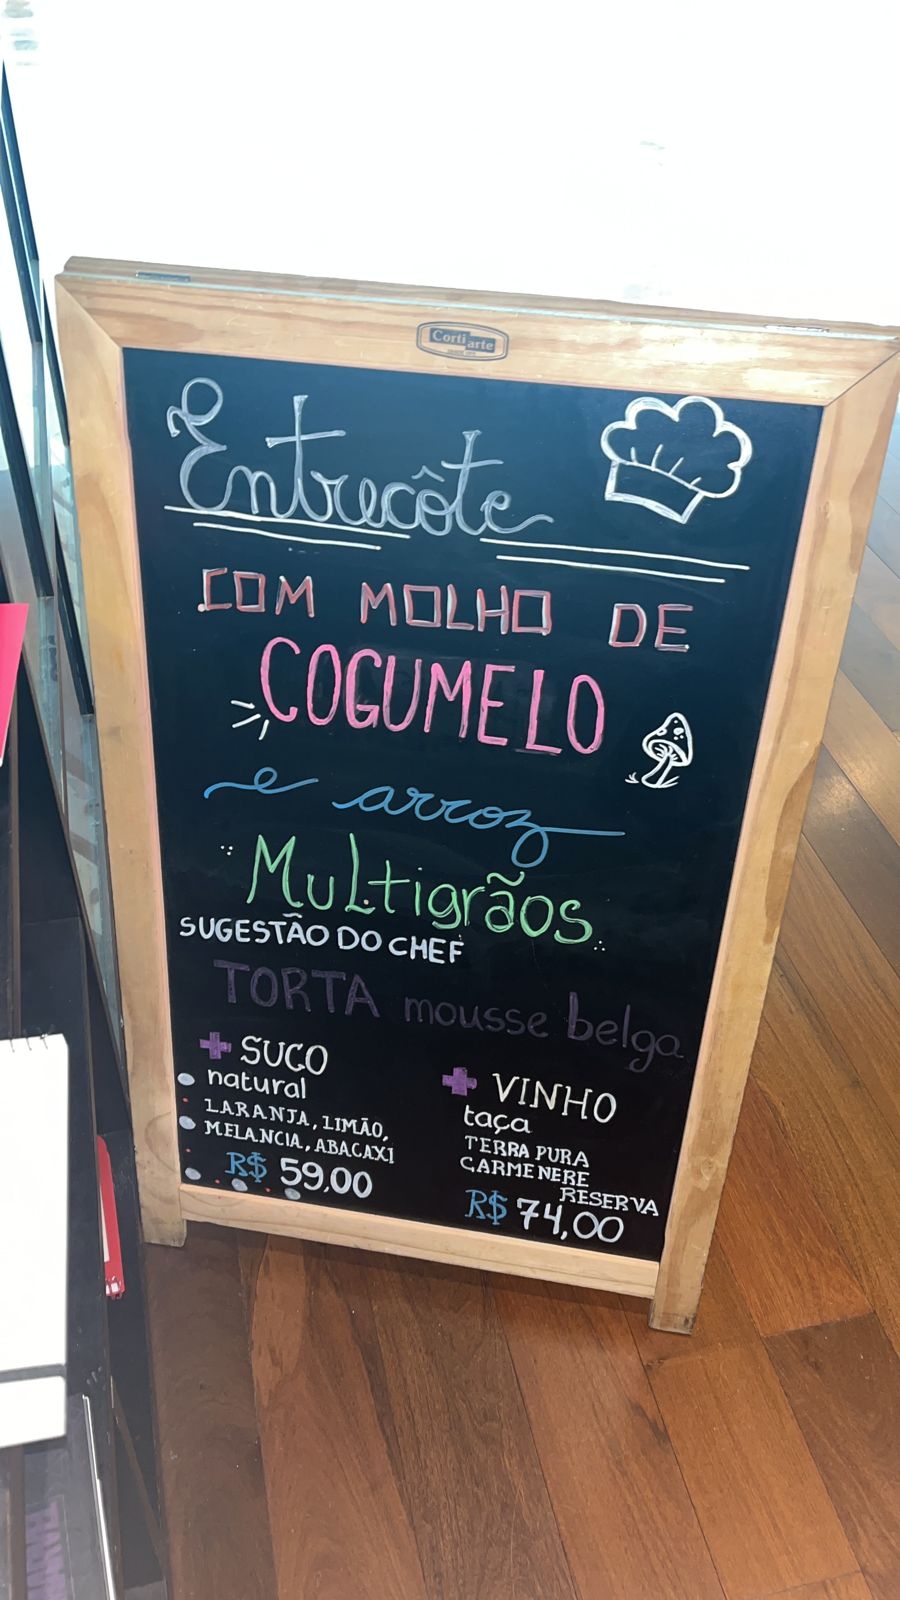 Corti arte
Entrecôte
COM MOLHO DE
COGUMELO
e arroz
MuLtigrãos
SUGESTÃO DO CHEF
TORTA mousse belga
+ SUCO
natural
LARANJA, LIMÃO,
MELANCIA, ABACAXI
R$ 59,00
+ VINHO
taça
TERRA PURA
CARMENERE
RESERVA
R$ 74,00